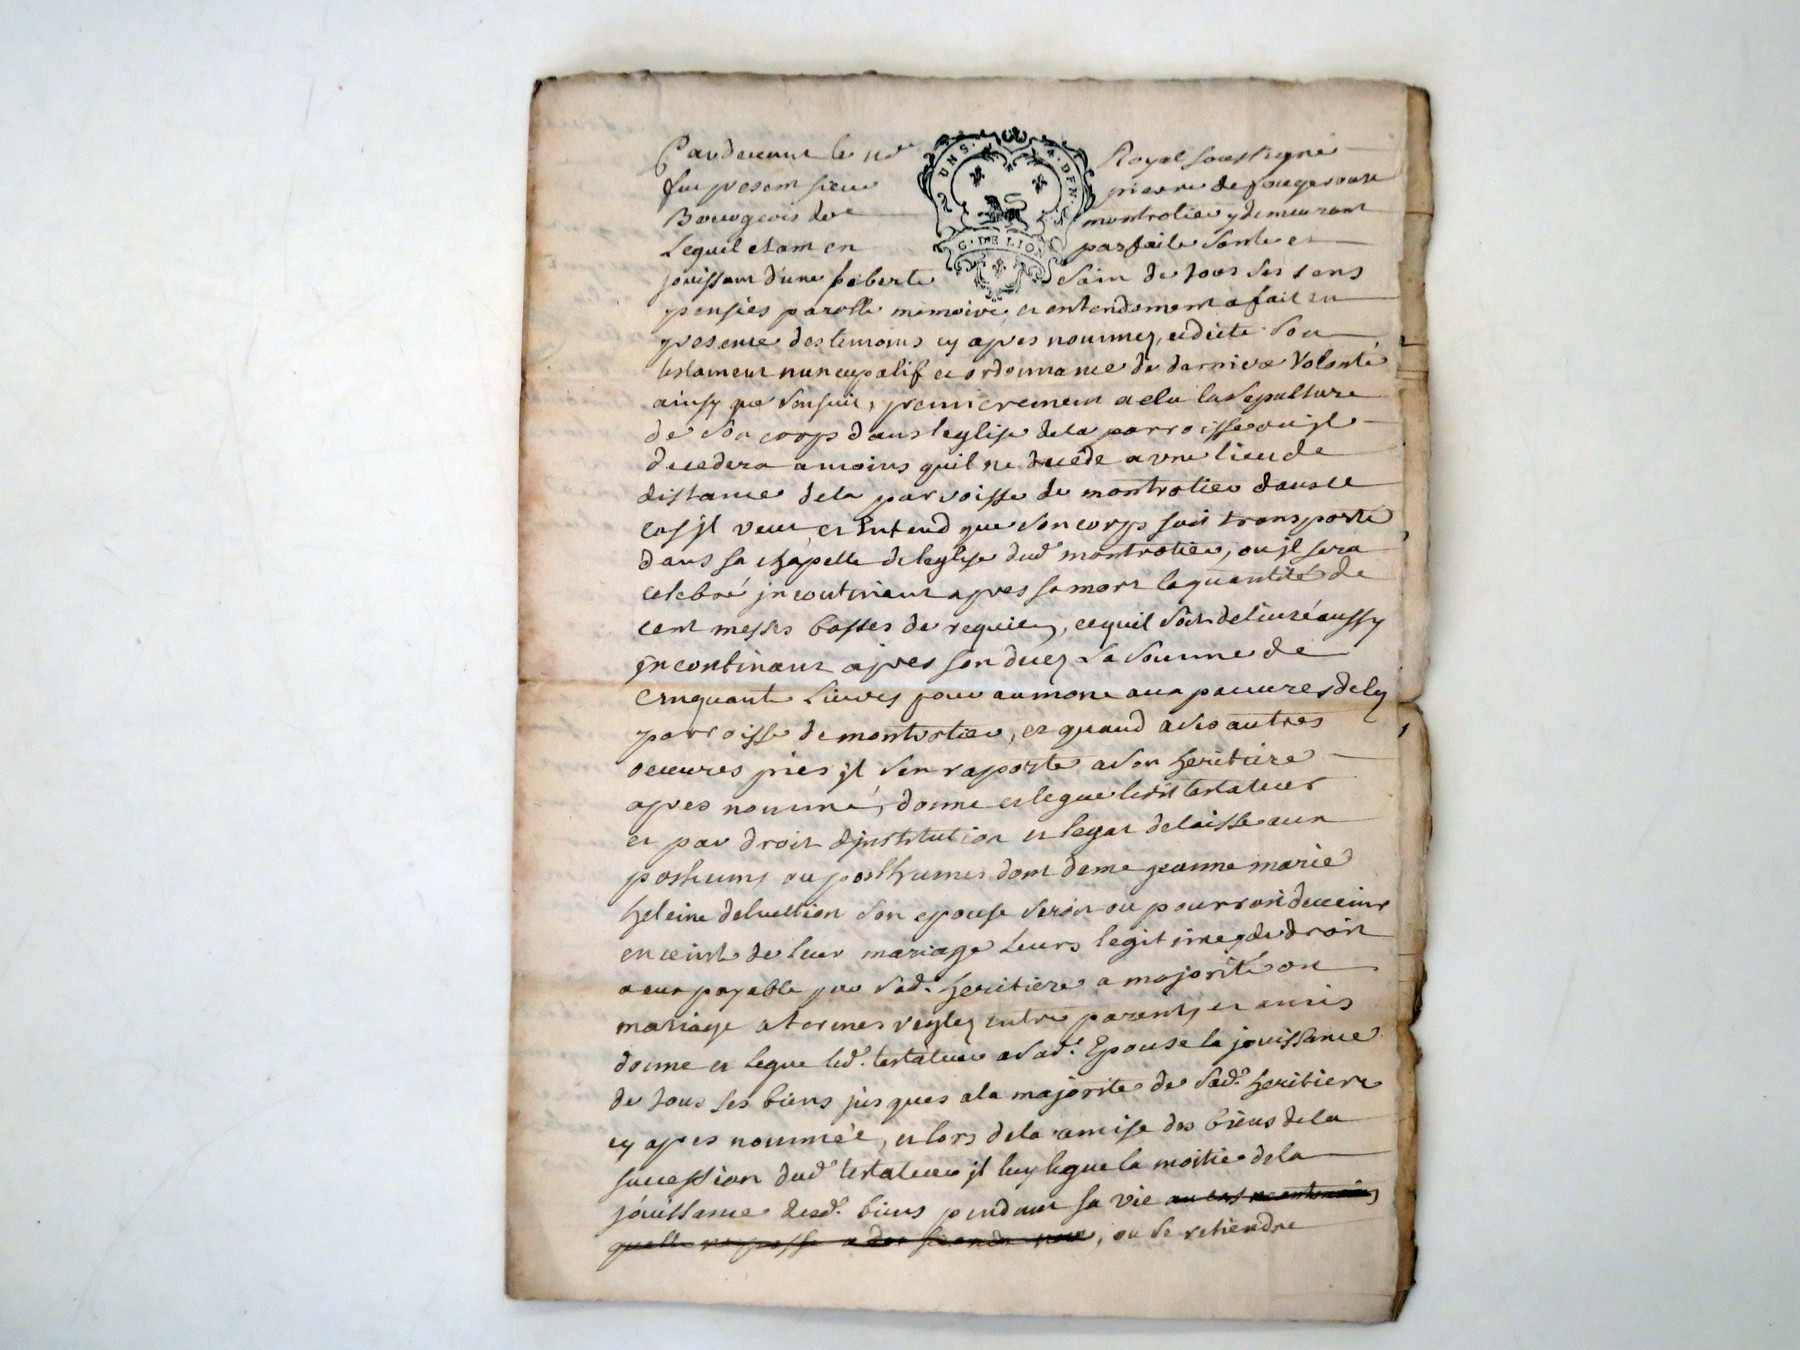 Pardevant le nre Royal soussigné
fut present sieur pierre de fougerouse
Bourgeois de montrotier y demeurant
Lequel etant en parfaite santé et
jouissant d'une liberté sain de tous ses sens
UN S. 4 DEN.
G. DE LION
pensées parolle memoire et entendement a fait en
presence des temoins cy apres nommez, et dicté son
testament nuncupatif et ordonnance de derniere Volonté
ainsy que s'ensuit, premierement a elu la sepulture
de son corps dans l'eglise de la parroisse ou il
decedera a moins quil ne decede a une lieue de
distance de la parroisse de montrotier dans ce
cas jl veut et Entend que son corps soit transporté
dans sa chapelle de l'eglise dud. montrotier, ou jl sera
celebré jncontinant apres sa mort la quantité de
cent messes basses de requiem, et quil soit delivré aussy
jncontinant apres son decez La somme de
cinquante Livres pour aumone aux pauvres de la
parroisse de montrotier, et quand a ses autres
oeuvres pies jl s'en raporte a son heritiere
apres nommé, donne et legue ledit testateur
et par droit d'jnstitution et legat delaisse aux
posthume ou posthumes dont deme jeanne marie
heleine son epouse seroit ou pourroit devenir
enceinte de leur mariage leurs legitimes de droit
a eux payable par sad. heritiere a majorité ou
mariage a termes reglez entre parents et amis
donne et legue led. testateur a sad. Epouse la jouissance
de tous ses biens jusques a la majorité de sad. heritiere
cy apres nommée, et lors de la remise des biens de la
succession dud. testateur jl luy legue la moitié de la
jouissance desd. biens pendant sa vie au cas
quelle ne passe a des secondes, ou se retiendra